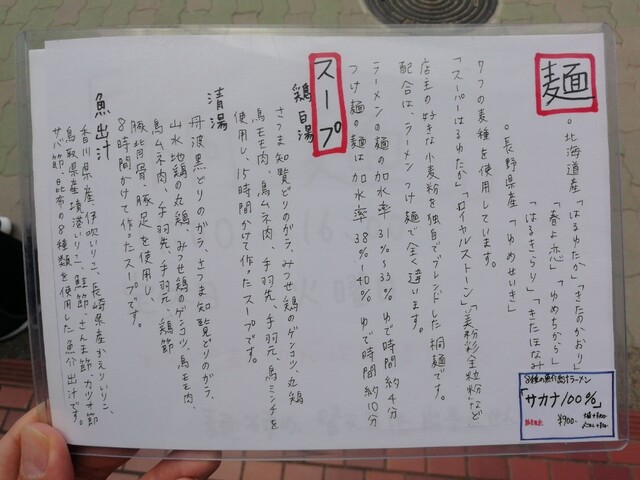 麺
。北海道産「はるゆたか」「きたのかおり」
「春よ恋」「ゆめちから」
「はるきらり」「きたほなみ」
。長野県産「ゆめせいき」
「スーパーはるゆたか」「ロイヤルストーン」「美粉彩全粒粉」など
7つの麦種を使用しています。
店主の好きな小麦粉を独自でブレンドした桐麺です。
配合は、ラーメン つけ麺で全く違います。
ラーメンの麺の加水率31%~33% ゆで時間約4分
つけ麺の麺は加水率38%~40% ゆで時間約10分
スープ
鶏白湯
さつま知覧どりのガラ、みつせ鶏のゲンコツ、丸鶏
鳥モモ肉、鳥ムネ肉、手羽先、手羽元、鳥ミンチを
使用し、15時間かけて作ったスープです。
清湯
丹波黒どりのガラ、さつま知覧どりのガラ、
山水地鶏の丸鶏、みつせ鶏のゲンコツ、鳥モモ肉、
鳥ムネ肉、手羽先、手羽元、鶏節
豚背骨、豚足を使用し、
8時間かけて作ったスープです。
魚出汁
香川県産、伊吹いりこ、長崎県産かえりいりこ、
鳥取県産境港いりこ、鮭節、さんま節、カツオ節
サバ節、昆布の8種類を使用した魚介出汁です。
8種の魚介出汁ラーメン
「サカナ100%」
¥900-